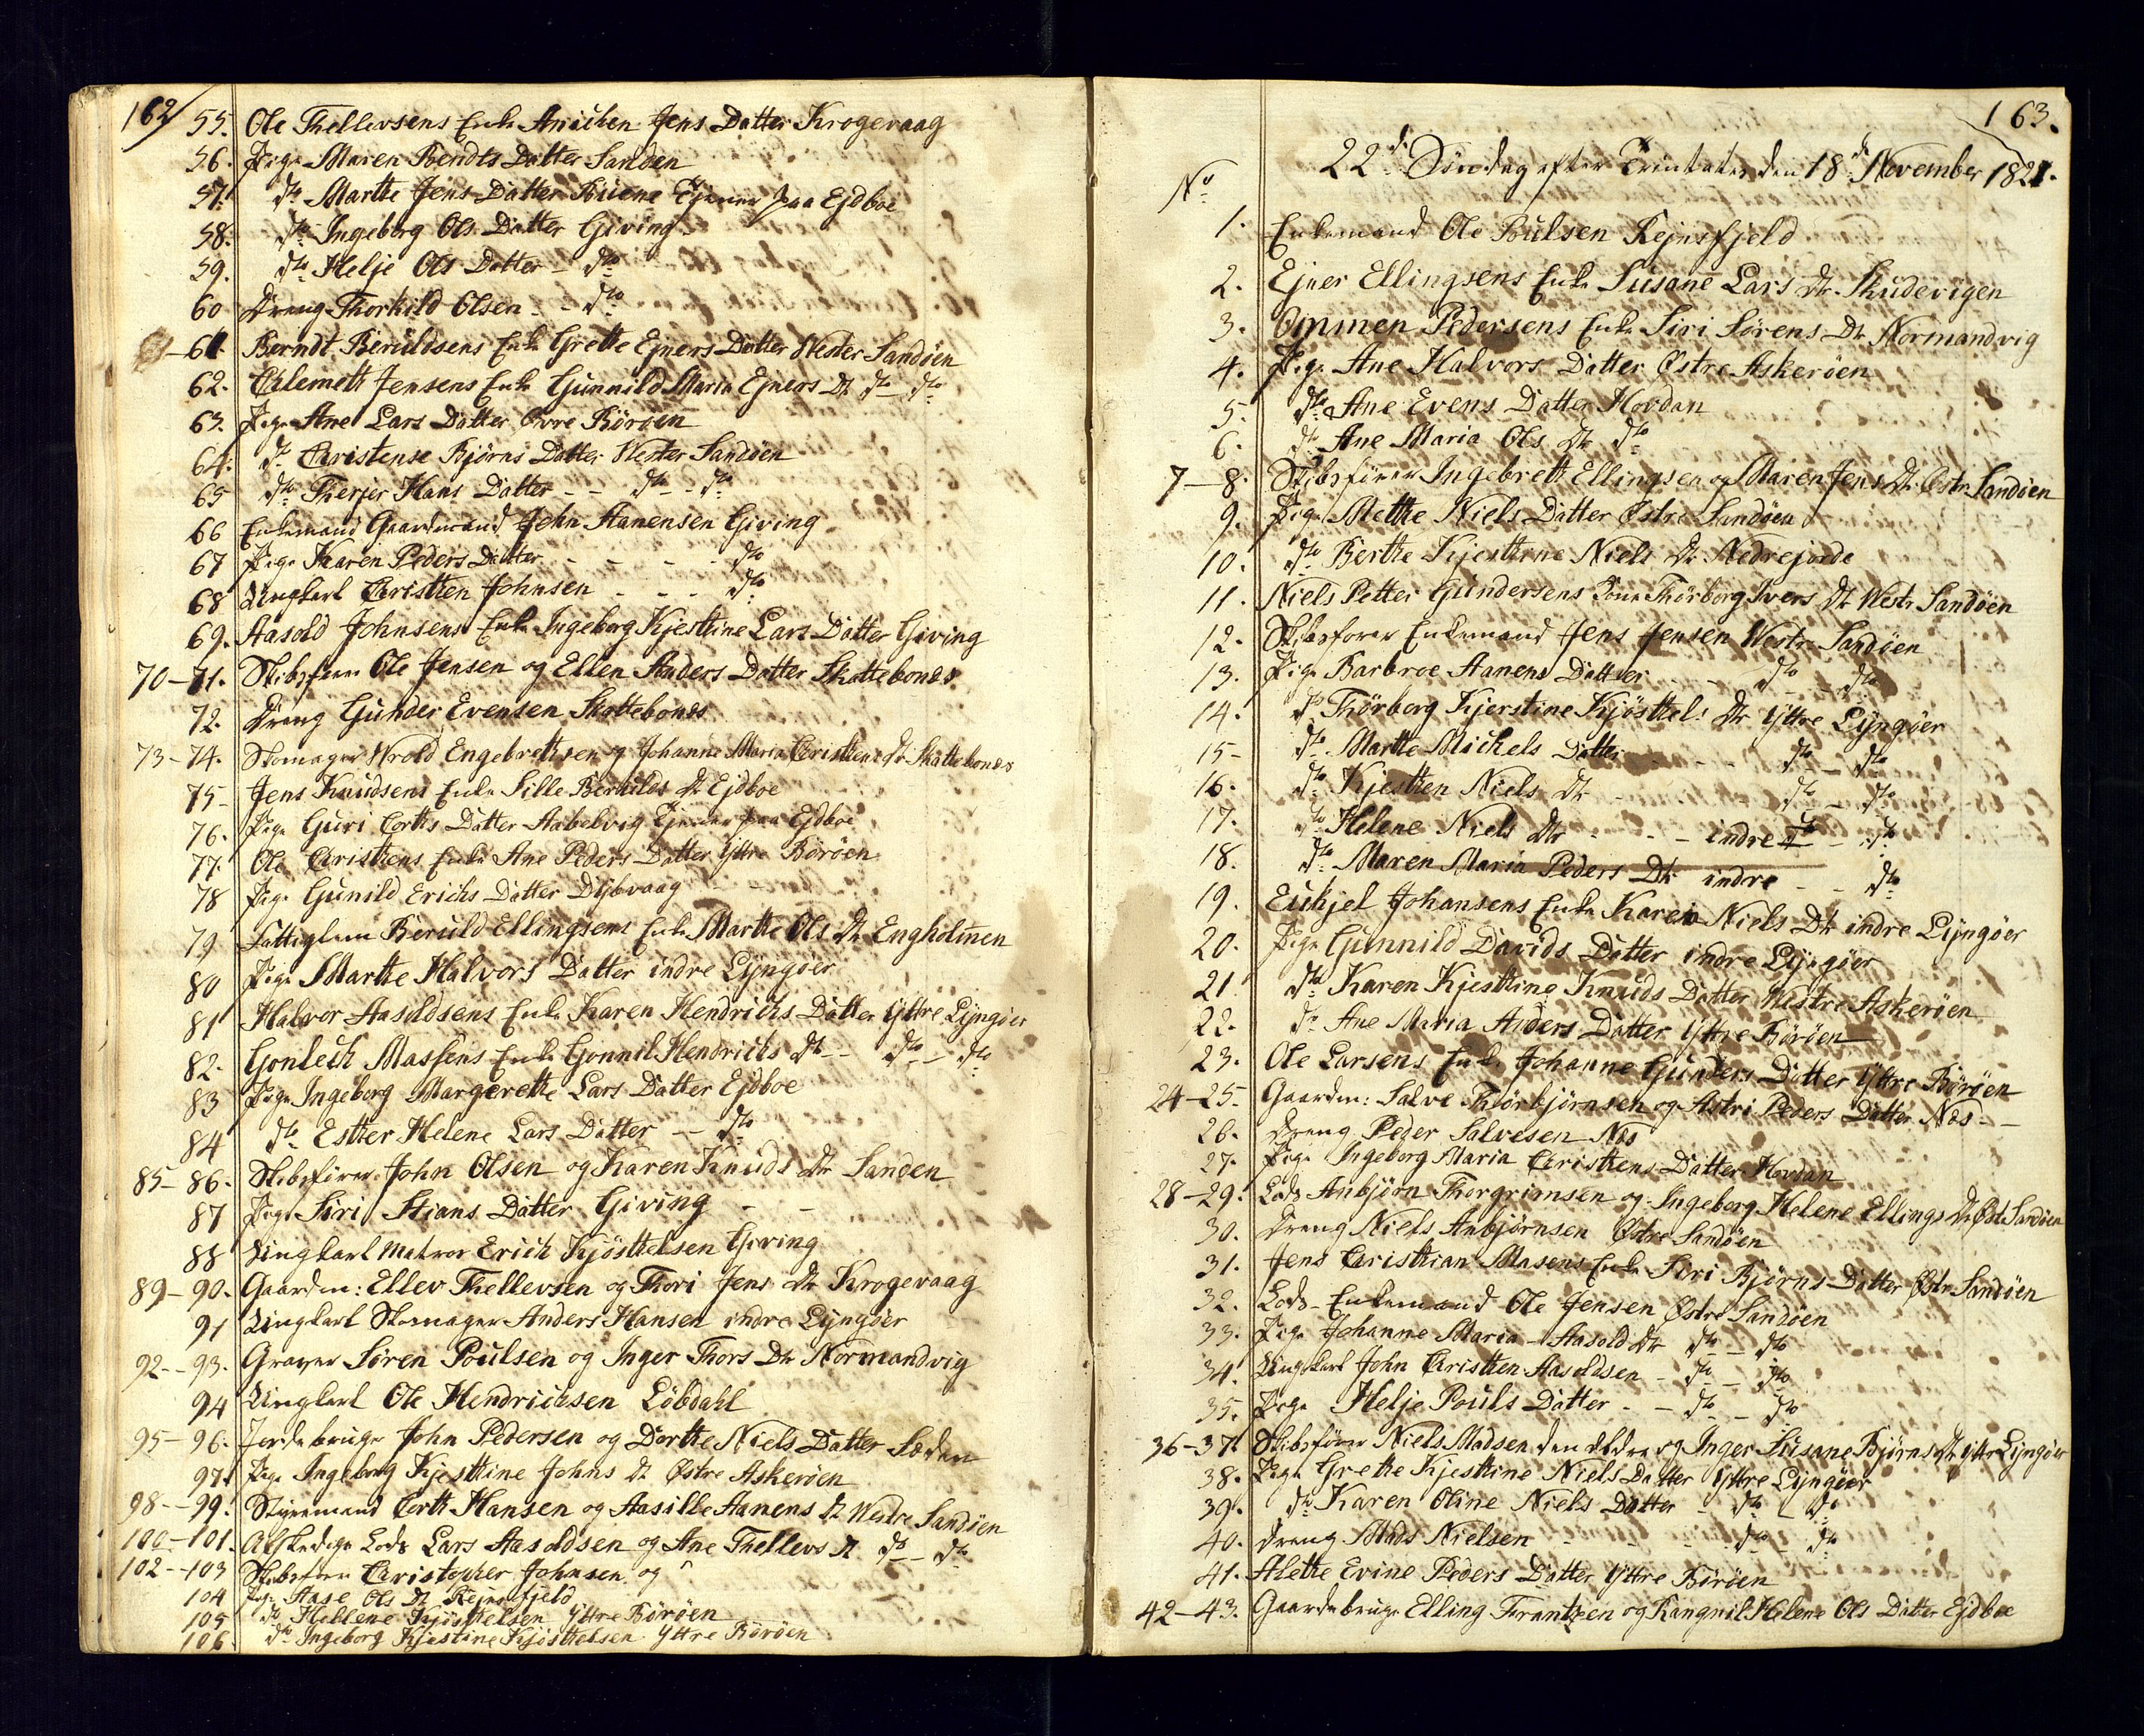 162
55. Ole Thellevsens Enke Anichen Jens Datter Krogevaag
56. Pige Maren Bendts Datter Sandøen
57. dto Marthe Jens Datter Tjener paa Ejdboe
58. dto Ingeborg Ols Datter Giving
59. dto Helje Ols Datter - dto
60 Dreng Thorkild Olsen - - dto
61. Berndt Beruldsens Enke Grethe Ejners Datter Wester Sandøen
62. Chlemett Jensens Enke Gunnild Maria Ejners Dt dto - dto
63. Pige Ane Lars Datter Øvre Börøen
64. dto Christense Bjørns Datter Wester Sandøen
65 dto Therjer Hans Datter - - dto - dto
66 Enkemand Gaardmand John Aanensen Giving
67 Pige Kaaren Peders Datter - - - - dto
68 Ungkarl Christen Johnsen - - - dto
69. Aasold Johnsens Enke Ingeborg Kjestine Lars Datter Giving
70-71. Skibsfører Ole Jensen og Ellen Anders Datter Skottebones
72. Dreng Gunder Evensen Skottebones
73-74. Skomager Wrold Engebrethsen og Johanne Maria Christens Dt Skottebones
75- Jens Knudsens Enke Sille Berulds Dt Ejdboe
76. Pige Guri Corths Datter Aabelvig Tjener paa Ejdboe
77. Ole Christens Enke Ane Peders Datter Yttre Börøen
78 Pige Gunild Erichs Datter Dybvaag
79 Fattiglem Beruld Ellingsens Enke Marthe Ols Dt Engholmen
80 Pige Marthe Halvors Datter indre Lyngøer
81 Halvor Aasoldsens Enke Karen Hendrichs Datter Yttre Lyngøer
82. Gonlech Massens Enke Gonnil Hendrichs Dt - - dto - dto
83 Pige Ingeborg Margerethe Lars Datter Ejdboe
84 dto Esther Helene Lars Datter - - dto
85-86. Skibsfører John Olsen og Karen Knuds Dtr Sanden
87 Pige Siri Stians Datter Giving - -
88 Ungkarl Matros Erich Kjösthelsen Giving
89-90. Gaardm: Ellev Thellevsen og Thori Jens Dtr Krogevaag
91 Ungkarl Skomager Anders Hansen indre Lyngøer
92--93. Graver Søren Poulsen og Inger Thors Dtr Normandvig
94 Ungkarl Ole Hendrichsen Löbdahl
95-96. Jordebruger John Pedersen og Dorthe Niels Datter
97. Pige Ingeborg Kjesthine Johns Dt Østre Askerøen
98--99. Styremand Corth Hansen og Aasille Aanens Dt Westre Sandøen
100-101. Afskediget Lods Lars Aasoldsen og Ane Thellevs Dt dto - dto
102--103 Skibsfører Christopher Johnsen og
104 Pige Aase Ols Dt Rejersfjeld
105 dto Hellene Kjösthelsen Yttre Börøen
106. dto Ingeborg Kjestine Kjösthelsen Yttre Börøen
163.
22de Søndag efter Trinitatis den 18de November 1821.
No
1. Enkemand Ole Poulsen Rejersfjeld
2. Ejner Ellingsens Enke Susane Lars Dtr Skudevigen
3. Ommen Pedersens Enke Siri Sørens Dtr Normandvig
4. Pige Ane Halvors Datter Østre Askerøen
5. dto Ane Evens Datter Hovdan
6. dto Ane Maria Ols Dtr dto
7-8. Skibsfører Ingebreth Ellingsen og Maren Jens Dtr Østre Sandøen
9. Pige Methe Niels Datter Østre Sandøen
10. dto Berthe Kjesthine Niels Dtr Nedrejorde
11. Niels Petter Gundersens Kone Thorborg Ivers Dtr Westre Sandøen
12. Skibsfører Enkemand Jens Jensen Westre Sandøen
13. Pige Barbroe Aanens Datter - - dto - dto
14. dto Thörborg Kjerstine Kjösthels Dtr Yttre Lyngøer
15- dto Marthe Michels Datter - - dto - dto
16. dto Kjesthen Niels Dtr - - dto - dto
17. dto Helene Niels Dtr - - - indre - dto
18. dto Maren Maria Peders Dtr indre - - dto
19. Euhjel Johansens Enke Karen Niels Dtr indre Lyngøer
20. Pige Gunnild Davids Datter indre Lyngøer
21 dto Karen Kjesthine Knuds Datter Westre Askerøen
22. dto Ane Maria Anders Datter Yttre Börøen
23. Ole Larsens Enke Johanne Gunders Datter Yttre Börøen
24-25. Gaardm: Salve Thorbjörnsen og Astri Peders Datter Næs - -
26. Dreng Peder Salvesen Næs
27. Pige Ingeborg Maria Christhens Datter Hovdan
28-29. Lods Anbjörn Thorgrimsen og Ingeborg Helene Ellings Dt Østre Sandøen
30. Dreng Niels Anbjörnsen Østre Sandøen
31. Jens Christhian Masens Enke Siri Bjørns Datter Østre Sandøen
32. Lods - Enkemand Ole Jensen Østre Sandøen
33. Pige Johanne Maria - Aasold Dtr dto - dto
34. Ungkarl John Christhen Aasoldsen - dto - dto
35. Pige Helje Pouls Datter - - dto - dto
36-37. Skibsfører Niels Madsen den ældre og Inger Susane Bjørns Dt Yttre Lyngøer
38. Pige Grethe Kjesthine Niels Datter Yttre Lyngøer
39. dto Karen Oline Niels Datter - dto - dto
40. Dreng Mads Nielsen - - - dto - dto
41. Alethe Evine Peders Datter Yttre Börøen
42-43. Gaardebruger Elling Frantzen og Rangnil Helene Ols Datter Ejdboe